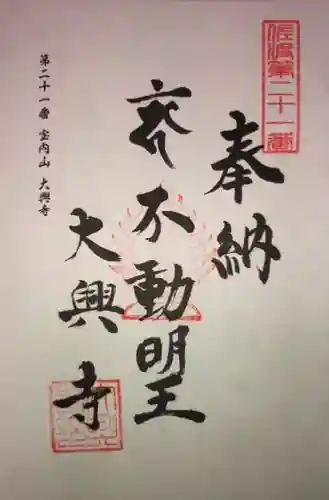 佐波第二十一番
奉納
不動明王
大興寺
第二十一番 宝内山 大興寺